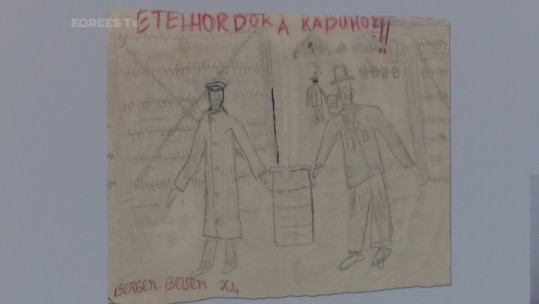 FORCES TV
ETELHORDÓK A KAPUHOZ!!
BERGEN-BELSEN XI.